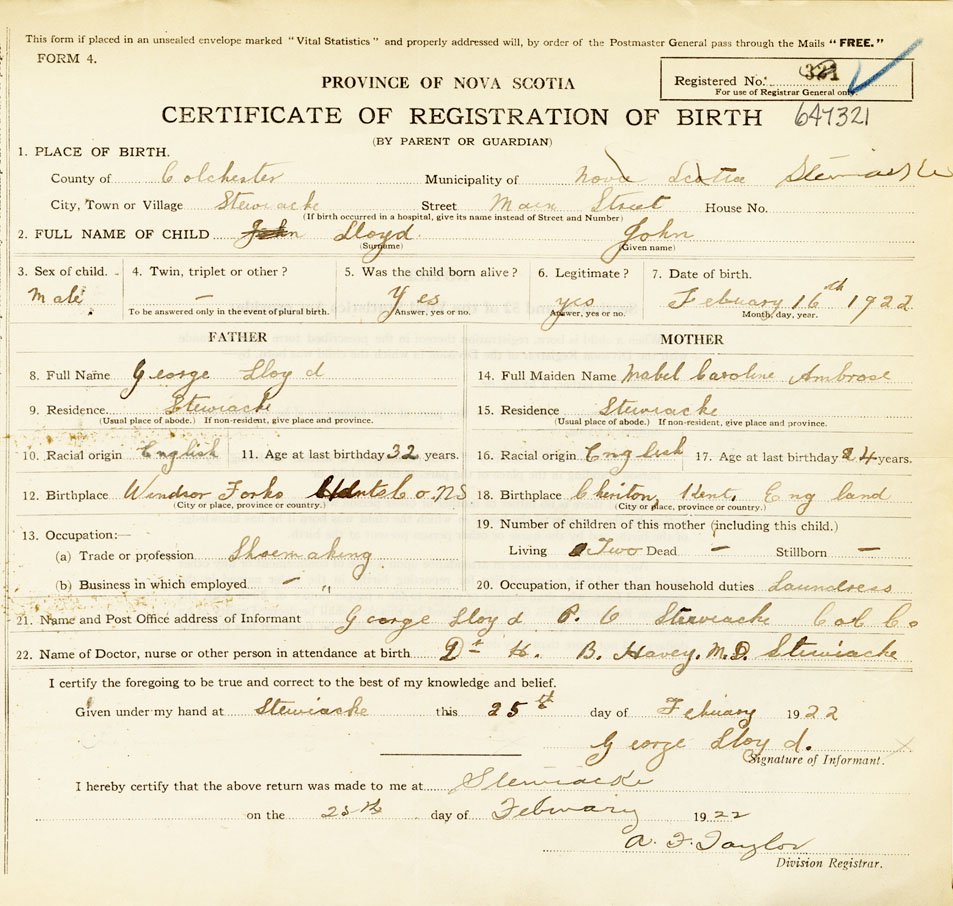 This form if placed in an unsealed envelope marked "Vital Statistics" and properly addressed will, by order of the Postmaster General pass through the Mails "FREE."
FORM 4.
Registered No. 321
For use of Registrar General only.
PROVINCE OF NOVA SCOTIA
CERTIFICATE OF REGISTRATION OF BIRTH 647321
(BY PARENT OR GUARDIAN)
1. PLACE OF BIRTH.
County of Colchester Municipality of Nova Scotia Stewiacke
City, Town or Village Stewiacke Street Main Street House No.
(If birth occurred in a hospital, give its name instead of Street and Number)
2. FULL NAME OF CHILD John Lloyd John
(Surname) (Given name)
3. Sex of child. 4. Twin, triplet or other? 5. Was the child born alive? 6. Legitimate? 7. Date of birth.
Male — Yes yes February 16th 1922
To be answered only in the event of plural birth. Answer, yes or no. Answer, yes or no. Month, day, year.
FATHER MOTHER
8. Full Name George Lloyd 14. Full Maiden Name Mabel Caroline Ambrose
9. Residence Stewiacke 15. Residence Stewiacke
(Usual place of abode.) If non-resident, give place and province. (Usual place of abode.) If non-resident, give place and province.
10. Racial origin English 11. Age at last birthday 32 years. 16. Racial origin English 17. Age at last birthday 24 years.
12. Birthplace Windsor Forks Hants Co. NS 18. Birthplace Cheriton, Kent, England
(City or place, province or country.) (City or place, province or country.)
13. Occupation:— 19. Number of children of this mother (including this child.)
(a) Trade or profession Shoemaking Living Two Dead — Stillborn —
(b) Business in which employed — " 20. Occupation, if other than household duties Laundress
21. Name and Post Office address of Informant George Lloyd P. O Stewiacke Col Co
22. Name of Doctor, nurse or other person in attendance at birth Dr H. B. Havey, M.D. Stewiacke
I certify the foregoing to be true and correct to the best of my knowledge and belief.
Given under my hand at Stewiacke this 25th day of February 1922
George Lloyd.
Signature of Informant.
I hereby certify that the above return was made to me at Stewiacke
on the 25th day of February 1922
A. F. Taylor
Division Registrar.